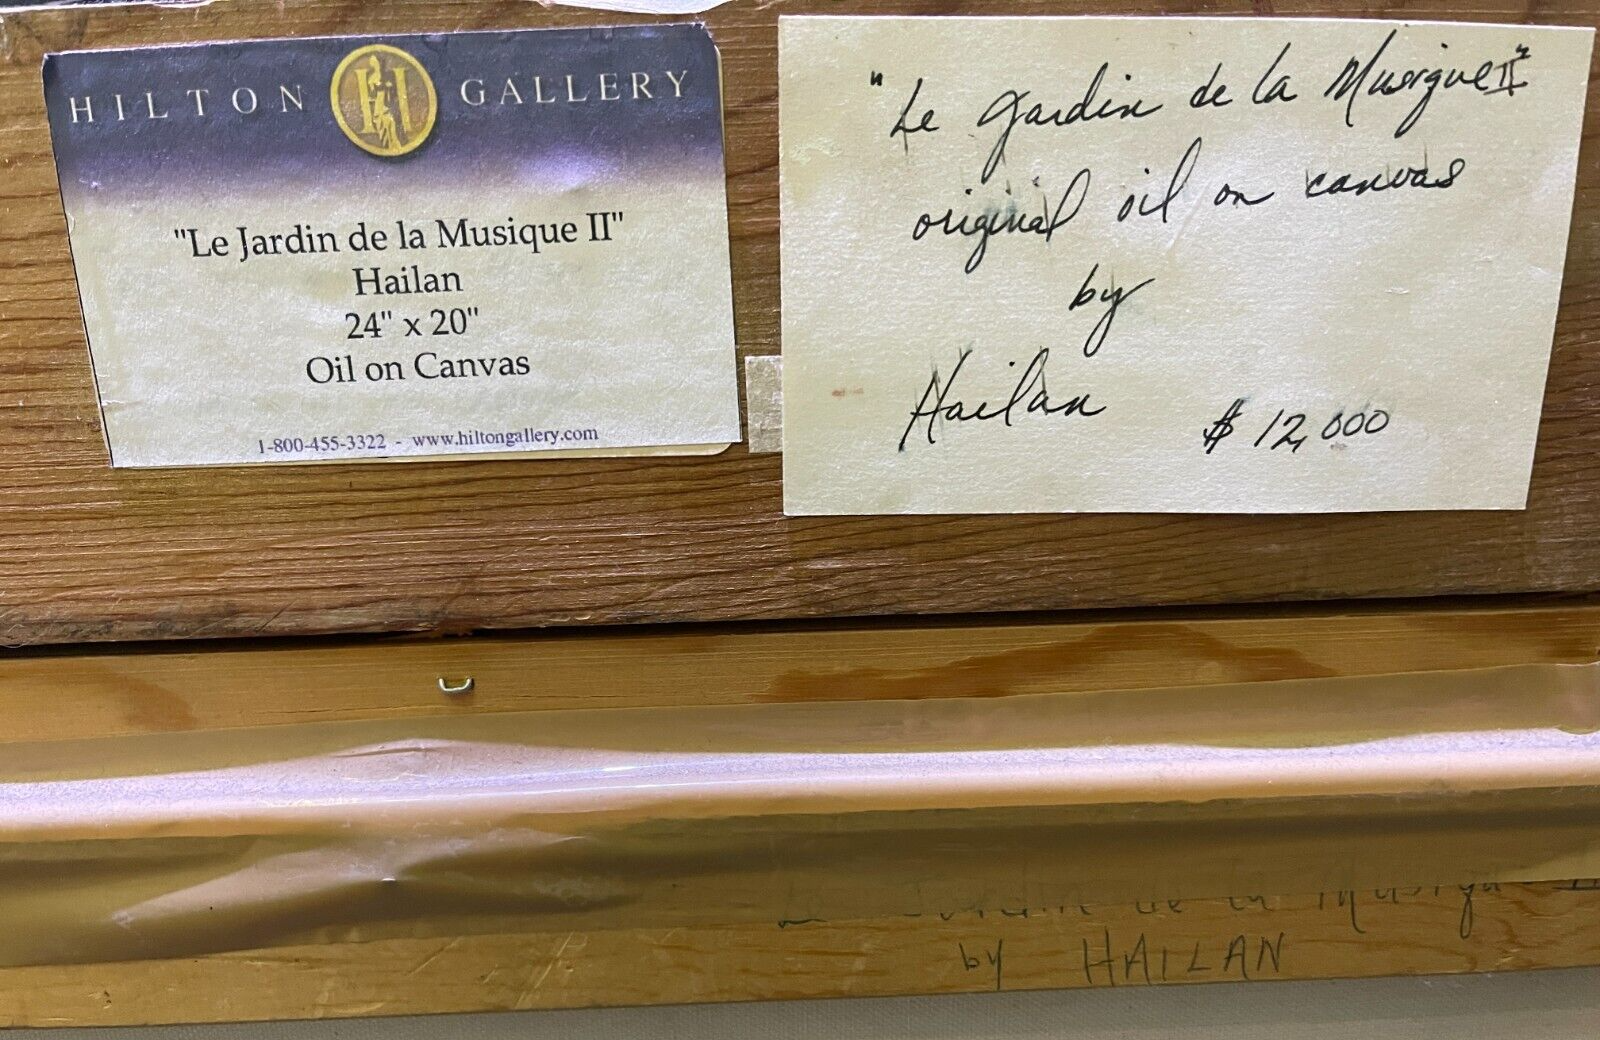 HILTON GALLERY
"Le Jardin de la Musique II"
Hailan
24" x 20"
Oil on Canvas
1-800-455-3322 - www.hiltongallery.com
"Le Jardin de la Musique II"
original oil on canvas
by
Hailan $ 12,000
de la Musique II
by HAILAN